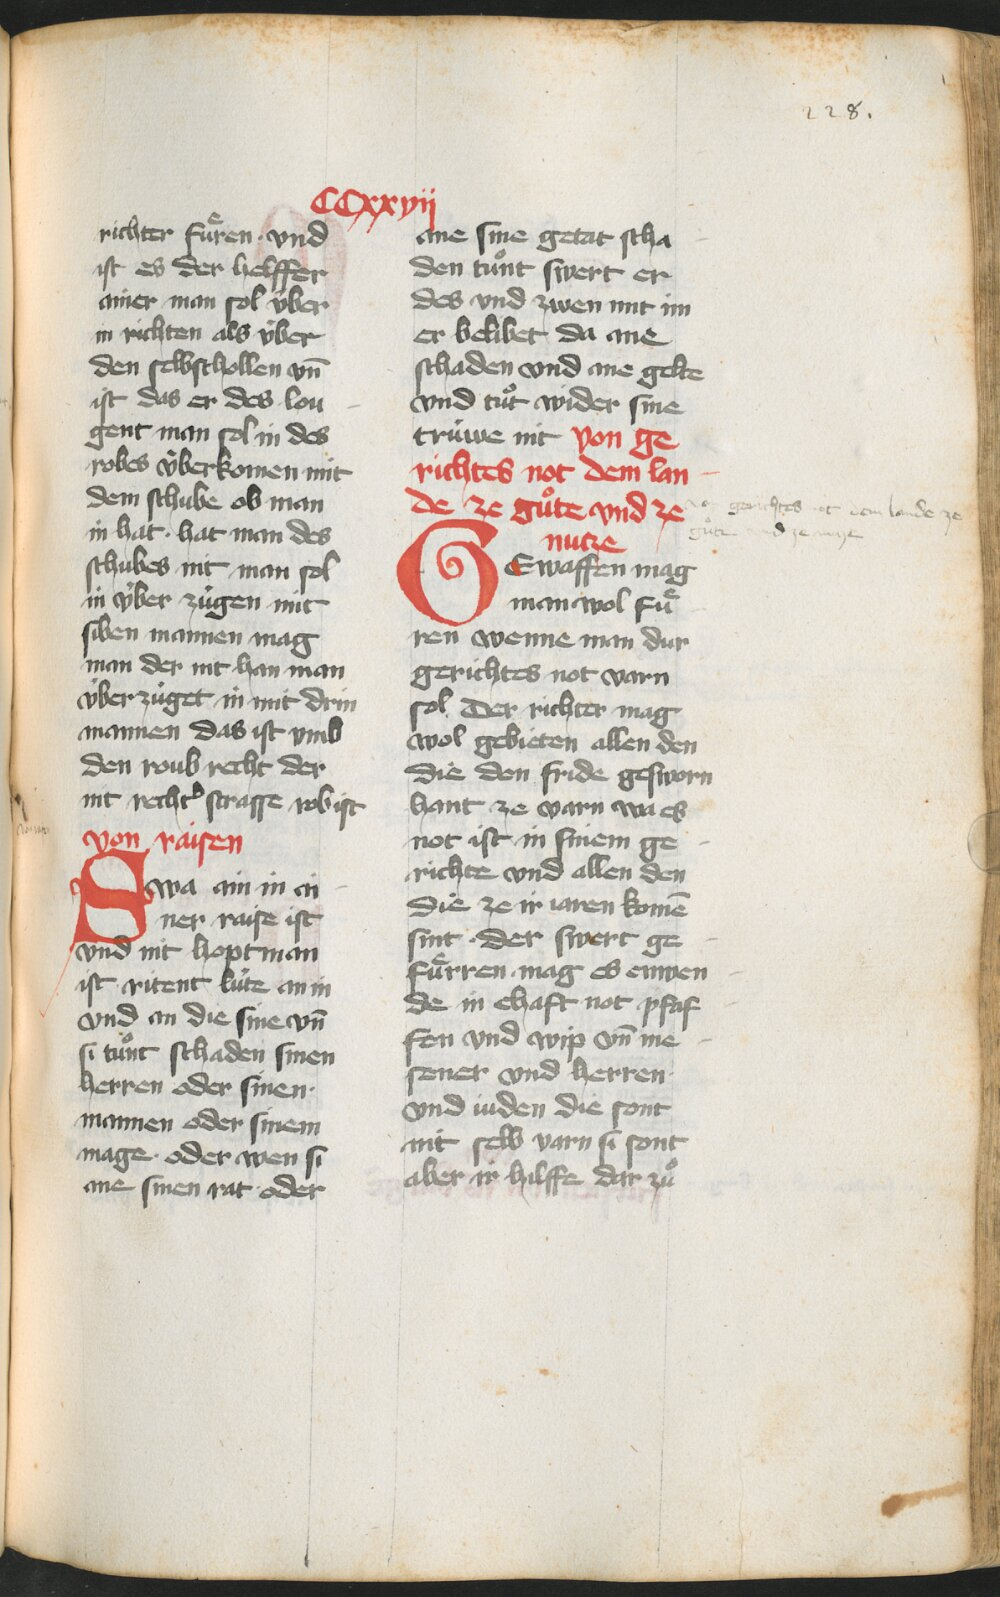 228.
CCxxvij
richter fuͤren · vnd
ist es der helffer
ainer man sol v́ber
in richten als v́ber
den selbschollen vn̄
ist das er des lou
gent man sol in des
robes v́berkomen mit
dem schube ob man
in hat · hat man des
schubes nit man sol
in v́ber zúgen mit
siben mannen mag
man der nit han man
v́ber zúget in mit drin
mannen das ist vmb
den roub recht der
nit recht᾽ strasse rob ist
von raisen
Swa ain in ai
ner raise ist
vnd nit hoptman
ist ritent lúte an in
vnd an die sine vn̄
si tuͦnt schaden sinen
herren oder sinen ·
mannen oder sinem
mage · oder wen si
ane sinen rat · oder
ane sine getat scha
den tuͦnt swert er
des vnd zwen mit im
er belibet da ane
schaden vnd ane gelte
vnd tuͦt wider sine
trúwe nit von ge
richtes not dem lan
de ze guͦte vnd ze
nutze
GEwaffen mag
man wol fuͤ
ren wenne man dur
gerichtes not varn
sol. Der richter mag
wol gebieten allen den
die den fride gesworn
hant ze varn wa es
not ist in sinem ge
richte vnd allen den
die ze ir iaren komē
sint · der swert ge
fuͤrren mag es enwen
de in ehaft not pfaf
fen vnd wip vn̄ me
sener vnd herren ·
vnd iuden die sont
nit selb varn si sont
aber ir hilffe dar zuͦ
gerichtes not dem lande ze
guͦte vnd ze nuze